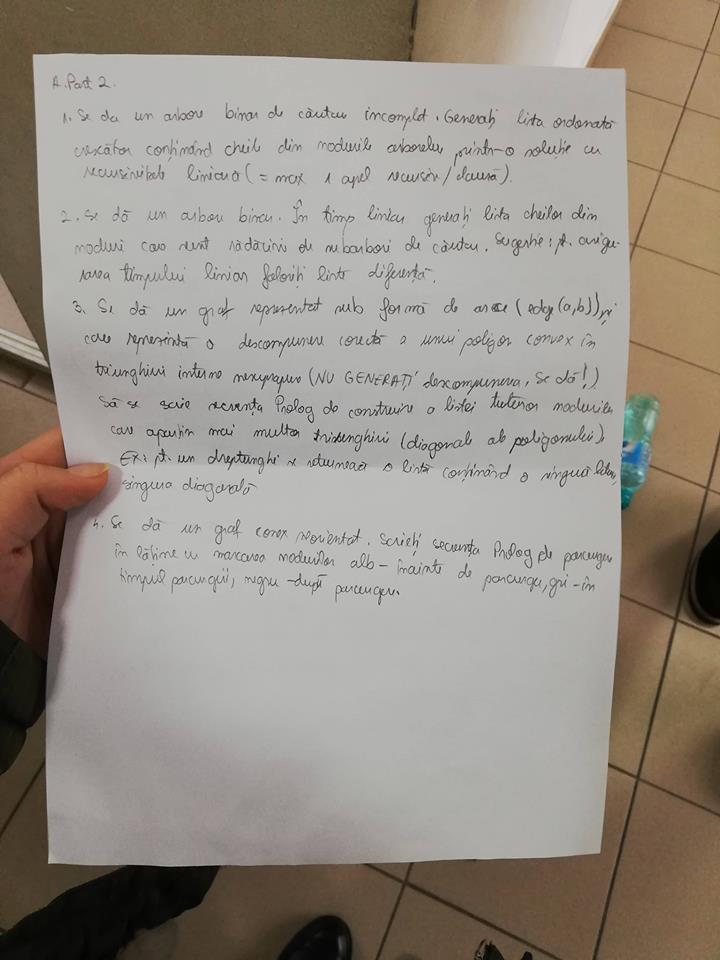 A. Part 2.
1. Se da un arbore binar de căutare incomplet. Generați lista ordonată
crescător conținând cheile din nodurile arborelui printr-o soluție cu
recursivitate liniară (= max 1 apel recursiv/clauză).
2. Se dă un arbore binar. În timp liniar generați lista cheilor din
noduri care sunt rădăcini de subarbori de căutare. Sugestie: pt. asigu-
rarea timpului liniar folosiți liste diferență.
3. Se dă un graf reprezentat sub formă de arce (edge(a,b)),
care reprezintă o descompunere corectă a unui poligon convex în
triunghiuri interne nesuprapuse (NU GENERAȚI descompunerea, se dă!)
Să se scrie secvența Prolog de construire a listei tuturor
care aparțin mai multor triunghiuri (diagonale ale poligonului)
Ex: pt. un dreptunghi se returnează o listă conținând o singură
singura diagonală
4. Se dă un graf conex neorientat. Scrieți secvența Prolog de parcurgere
în lățime cu marcarea nodurilor alb - înainte de parcurgere, gri - în
timpul parcurgerii, negru - după parcurgere.